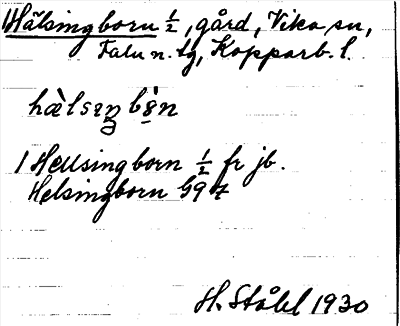 1 Hälsingborn ½, gård, Vika sn,
Falu n. tg, Kopparb. l.
hàlsıŋbȯ̤n
1 Hellsingborn ½ fr jb.
Helsingborn G97
H. Ståhl 1930